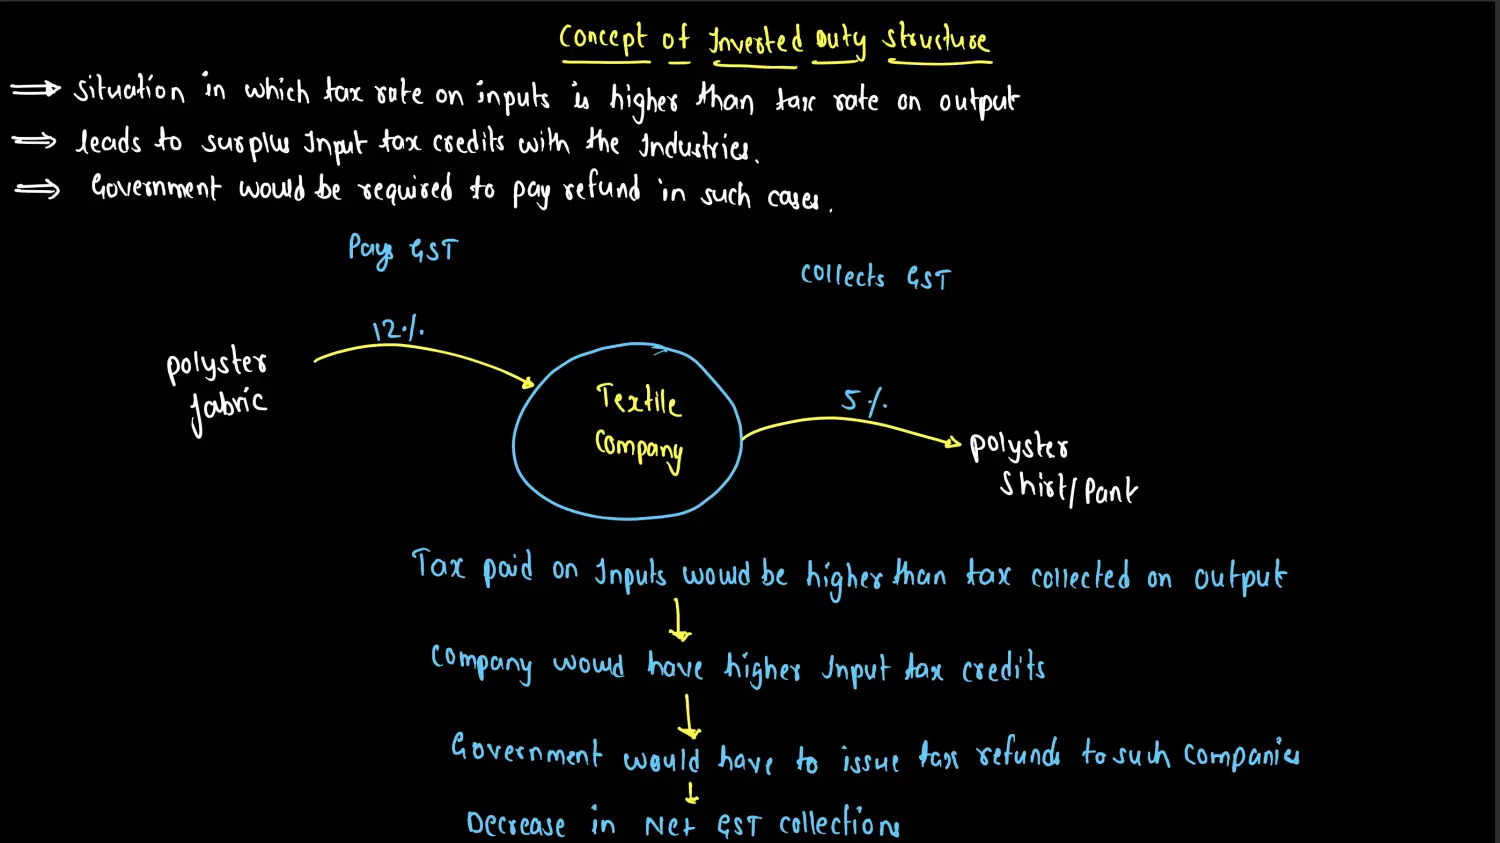 Concept of Inverted Duty Structure
⇒ Situation in which tax rate on inputs is higher than tax rate on output
⇒ leads to surplus Input tax credits with the Industries.
⇒ Government would be required to pay refund in such cases.
Pays GST
Collects GST
12%
polyster
fabric
Textile
Company
5%
polyster
Shirt/Pant
Tax paid on Inputs would be higher than tax collected on output
Company would have higher Input tax credits
Government would have to issue tax refunds to such Companies
Decrease in Net GST collections